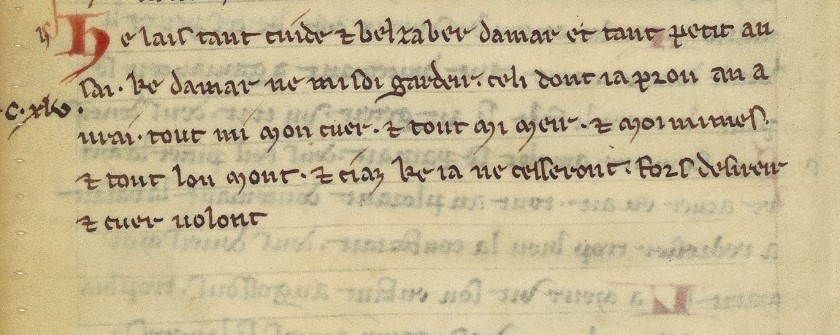 He lais tant cuide ⁊ belzaber damar et tant petit an
sai. ke damar ne misdi gardeir. celi dont ia prou an a
·C·xlv·
urai. tout mi mon cuer. ⁊ tout mi meir. ⁊ moimimes.
⁊ tout lou mont. ⁊ ciaz ke ia ne cesseront. fors desireir
⁊ cuer uolont